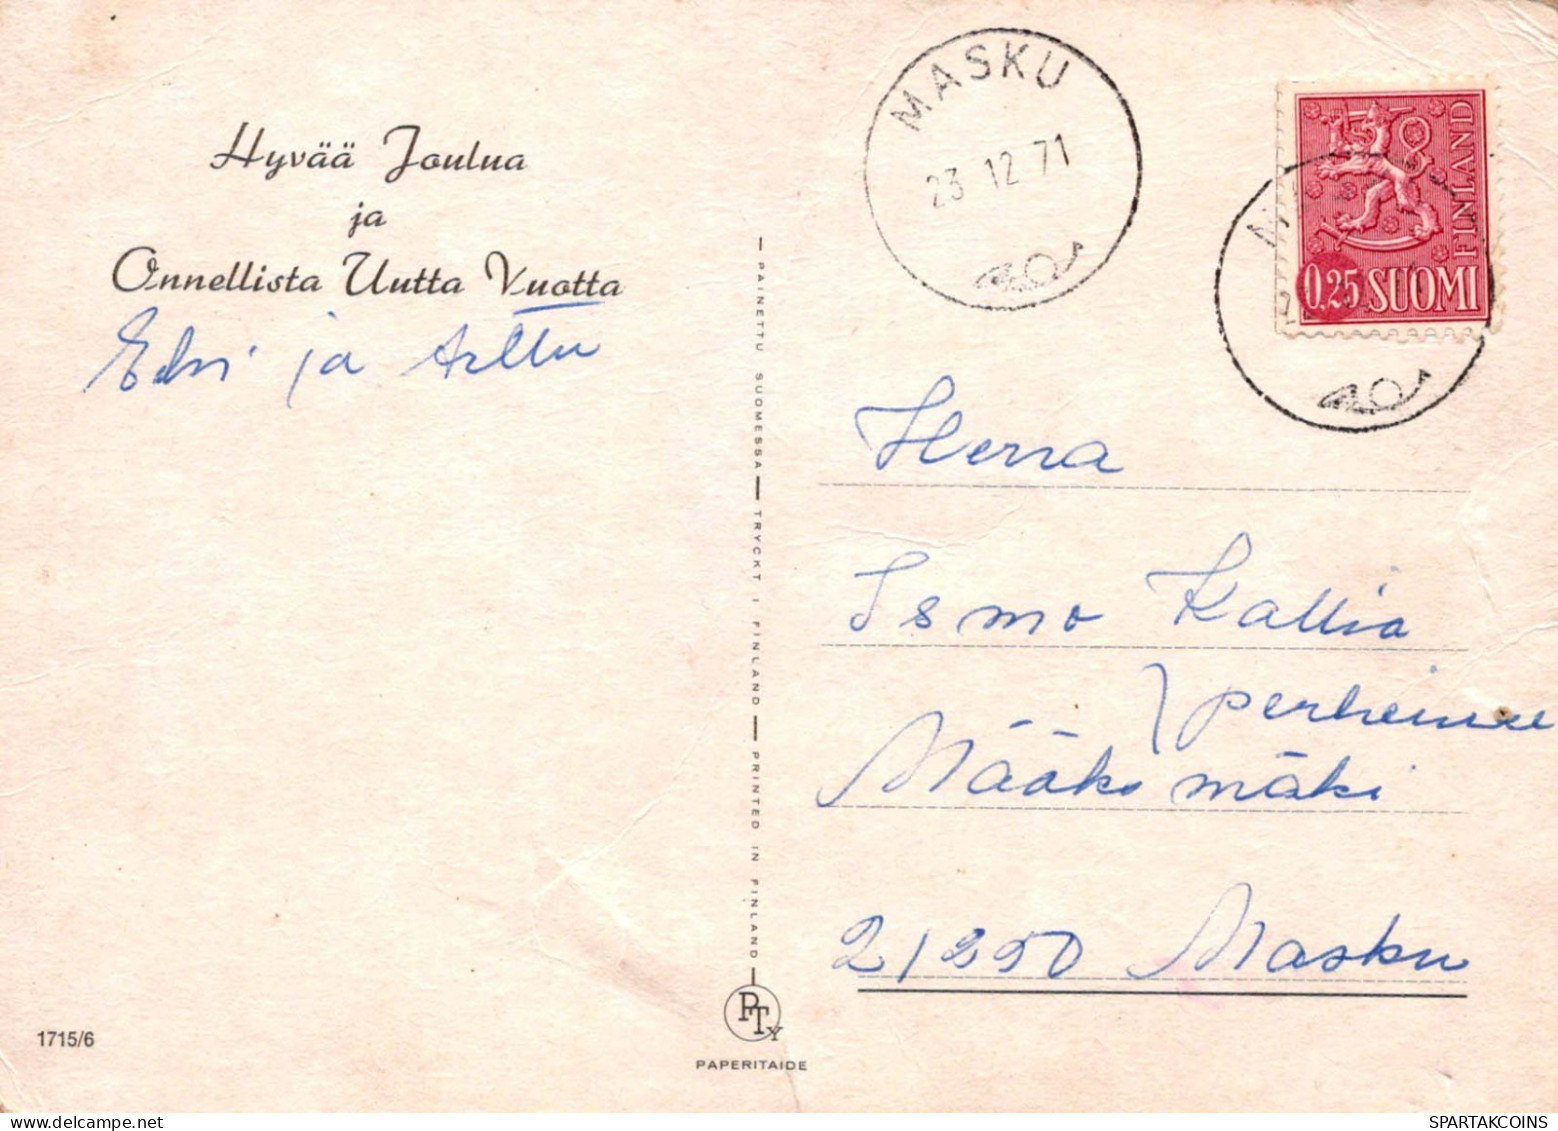 Hyvää Joulua
ja
Onnellista Uutta Vuotta
Elvi ja Arttu
MASKU
23 12 71
FINLAND
0,25 SUOMI
Herra
Ismo Kallio
perheineen
Määksmäki
21250 Masku
PAINETTU SUOMESSA — TRYCKT I FINLAND — PRINTED IN FINLAND
PTY
PAPERITAIDE
1715/6
SPARTAKCOINS